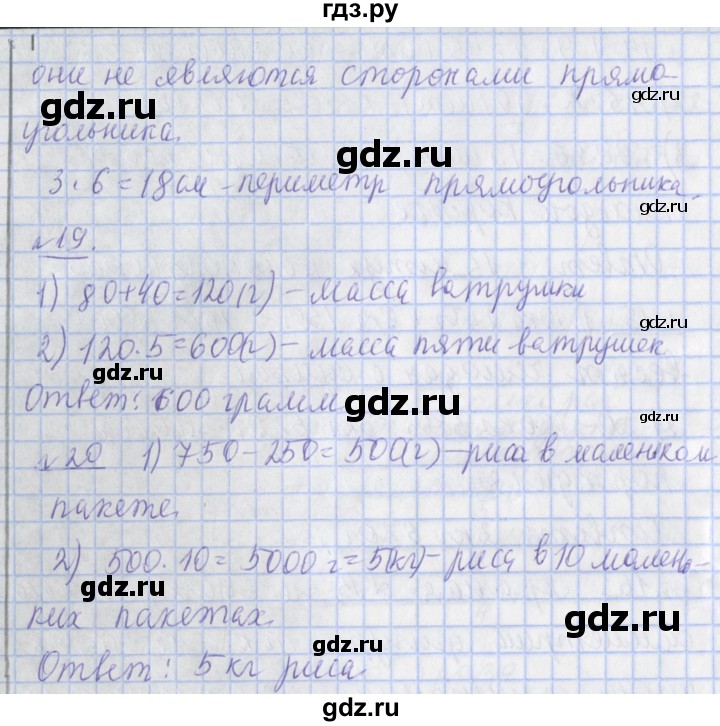 гдз.ру
они не являются сторонами прямо-
gdz.ru
gdz.ru
угольника.
gdz.ru
3·6=18см - периметр прямоугольника.
gdz.ru
gdz.ru
№19.
1) 80+40=120(г) - масса ватрушки
gdz.ru
2) 120·5=600(г) - масса пяти ватрушек
gdz.ru
Ответ: 600 грамм
gdz.ru
gdz.ru
№20 1) 750-250=500(г) - риса в маленьком
gdz.ru
пакете.
gdz.ru
2) 500·10=5000 г=5(кг) - риса в 10 малень-
gdz.ru
ких пакетах.
gdz.ru
gdz.ru
Ответ: 5 кг риса.
gdz.ru